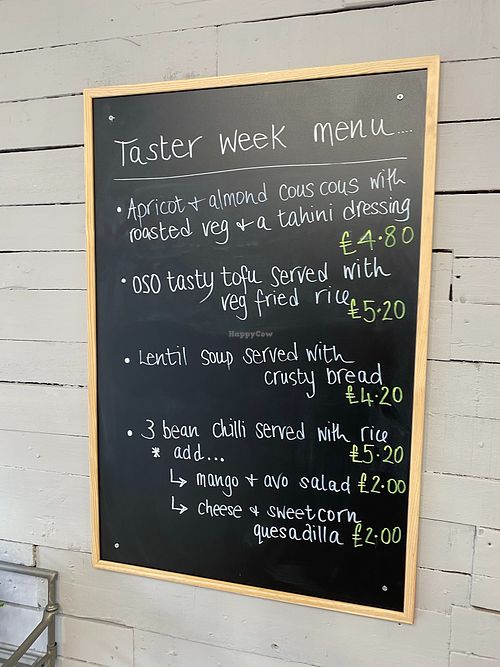 Taster Week menu....
• Apricot + almond cous cous with
roasted veg + a tahini dressing
£4.80
• OSO tasty tofu served with
veg fried rice £5.20
HappyCow
• Lentil soup served with
crusty bread
£4.20
• 3 bean chilli served with rice
* add... £5.20
↳ mango + avo salad £2.00
↳ cheese + sweetcorn
quesadilla £2.00